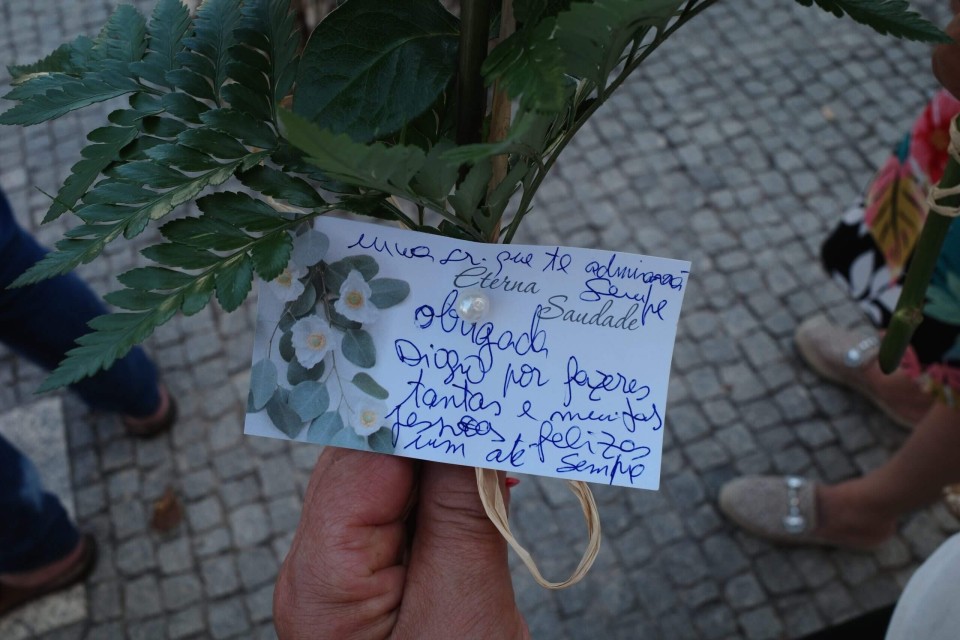 uma sr. que te admirará
Sempre
Eterna
Saudade
obrigada
Diogo por fazeres
tantas e muitas
pessoas felizes
um até Sempre